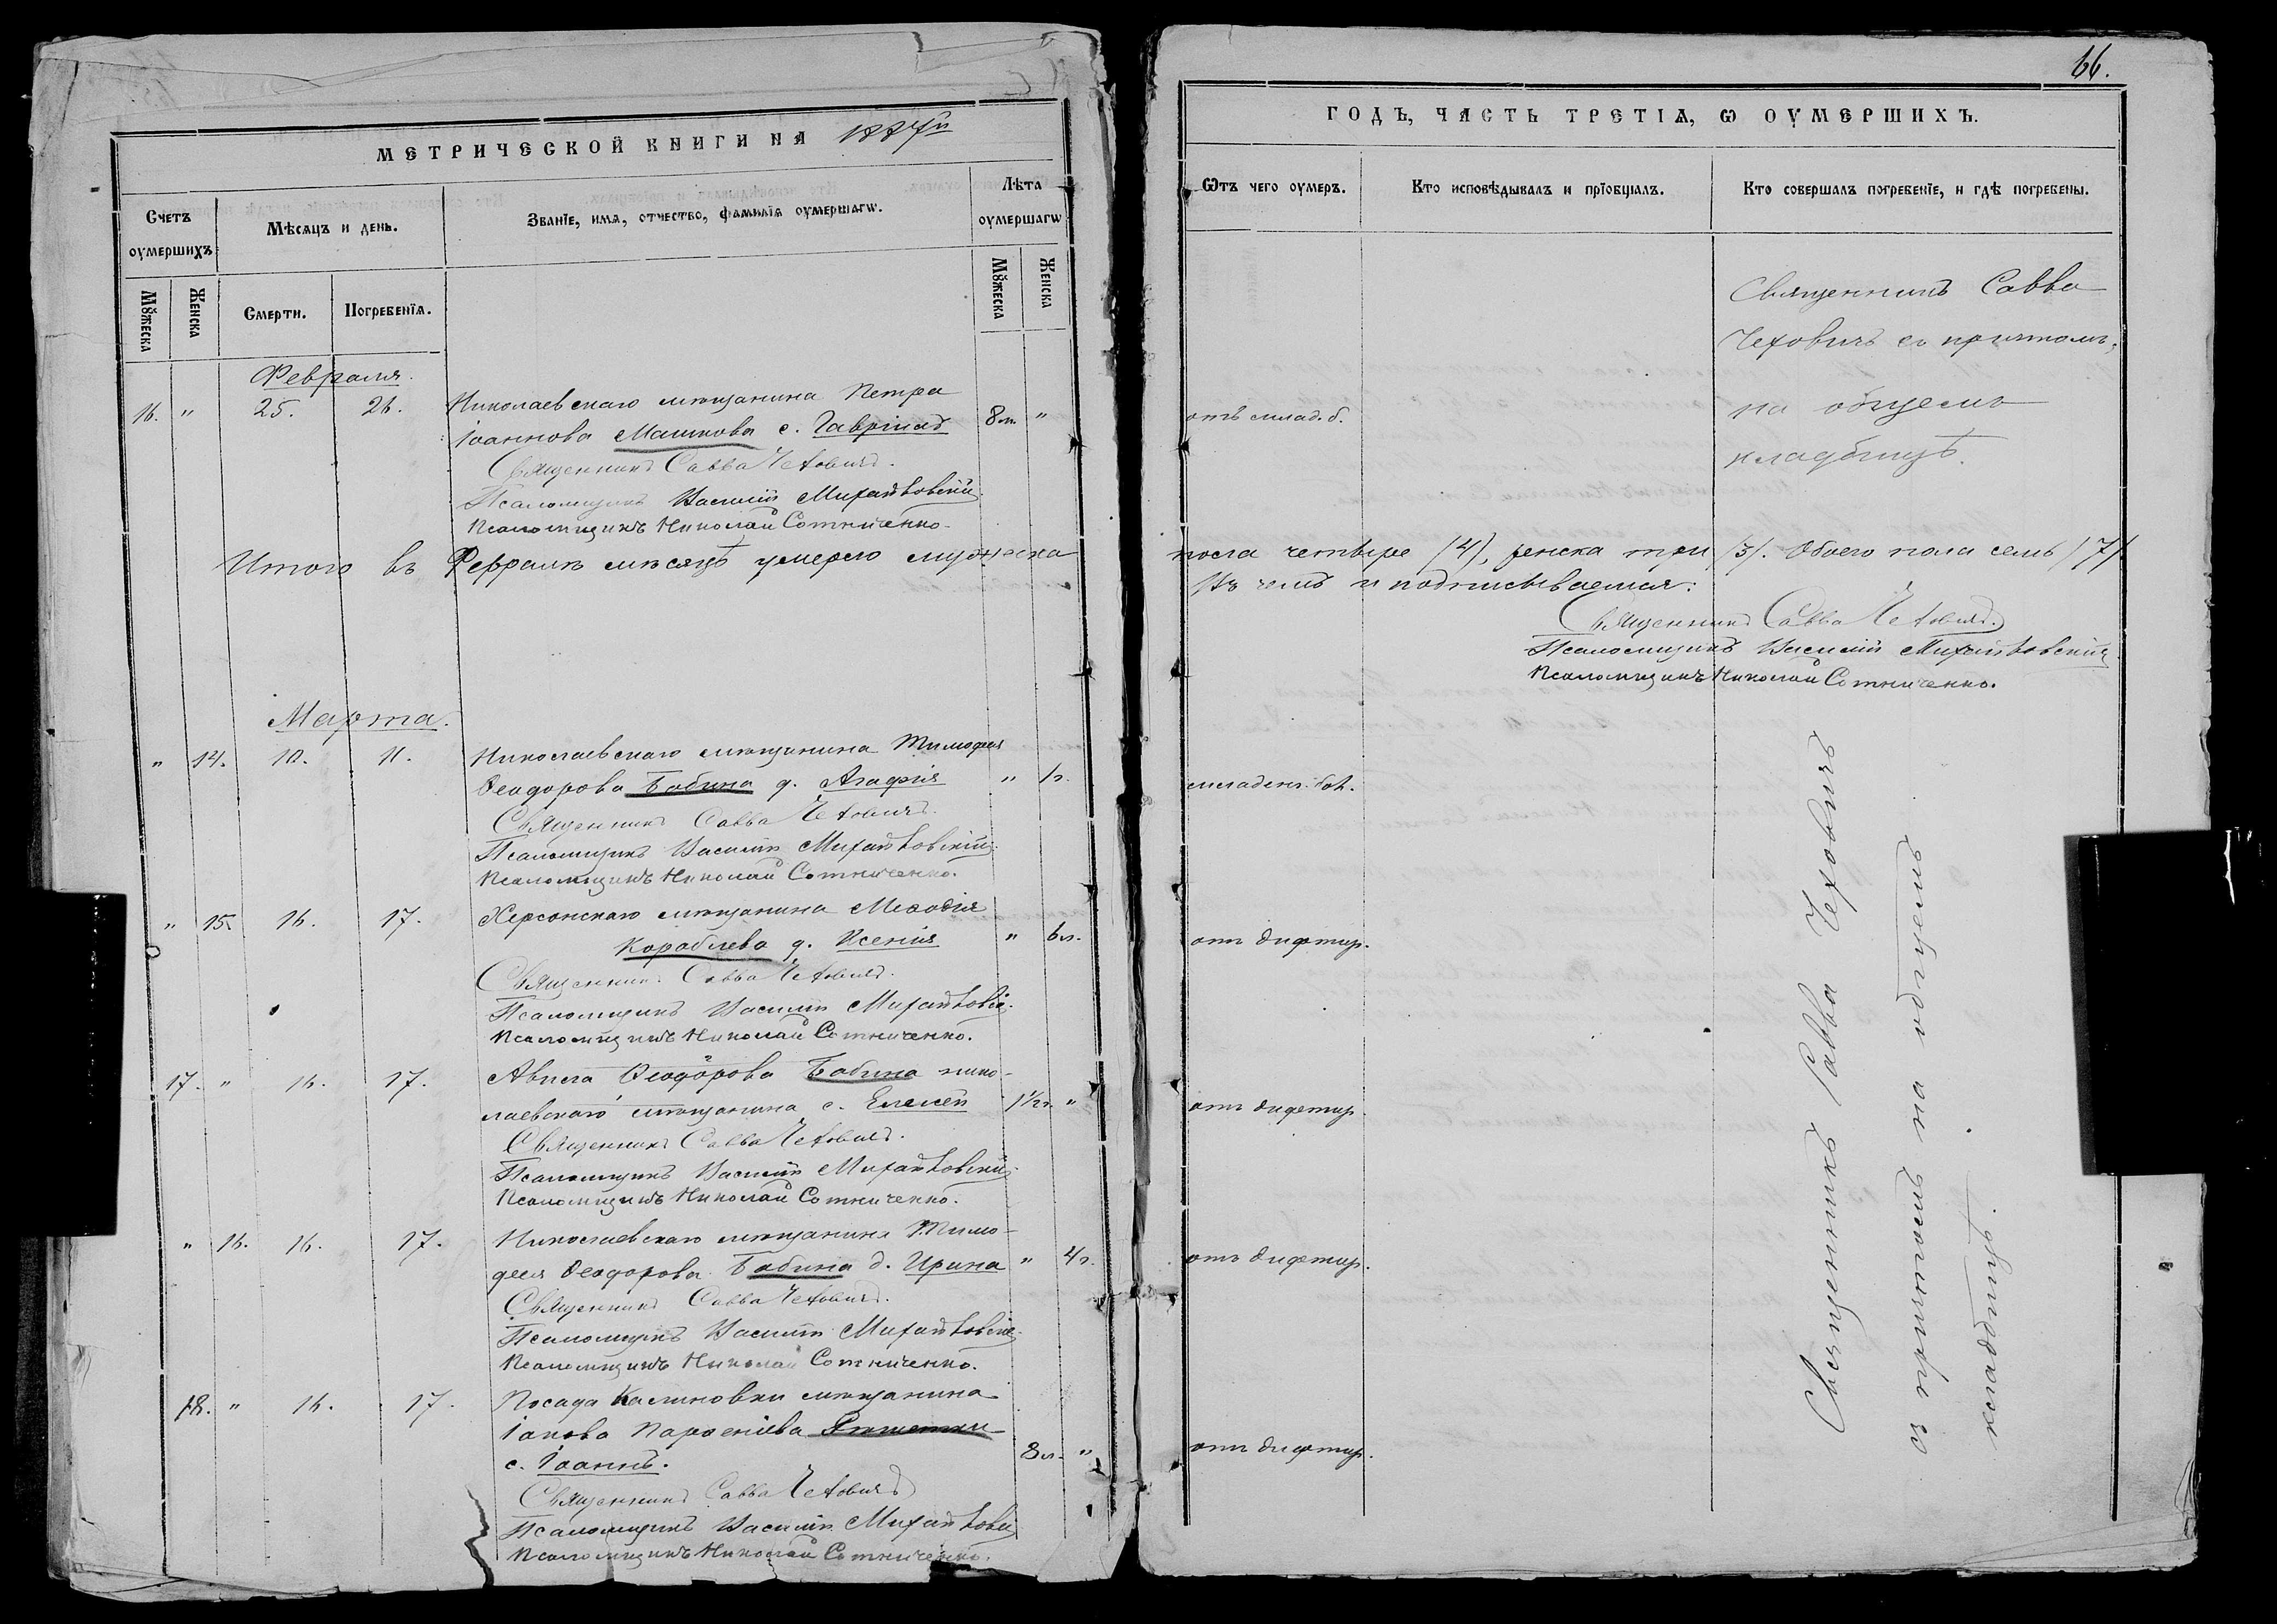 МЕТРИЧЕСКОЙ КНИГИ НА 1887й
Счетъ оумершихъ
Мѣсяцъ и день.
Званїе, имя, отчество, фамилїя оумершагѡ.
Лѣта оумершагѡ
Мꙋжеска
Женска
Смерти.
Погребенїя.
Мꙋжеска
Женска
Февраля.
16. " 25. 26. Николаевскаго мѣщанина Петра
Іоаннова Машкова с. Гавріилъ 8 м. "
Священникъ Савва Чеховичъ.
Псаломщикъ Василій Михайловскій
Псаломщикъ Николай Сотниченко.
Итого въ Февралѣ мѣсяцѣ умерло мужеска
Марта.
" 14. 10. 11. Николаевскаго мѣщанина Тимофея
Ѳеодорова Бабина д. Агафія " 1 г.
Священникъ Савва Чеховичъ.
Псаломщикъ Василій Михайловскій
Псаломщикъ Николай Сотниченко.
" 15. 16. 17. Херсонскаго мѣщанина Меѳодія
Кораблева д. Ксенія " 6 л.
Священникъ Савва Чеховичъ.
Псаломщикъ Василій Михайловскій
Псаломщикъ Николай Сотниченко.
17. " 16. 17. Ѳеодорова Бабина нико-
лаевскаго мѣщанина с. Елисей 1½ г. "
Священникъ Савва Чеховичъ.
Псаломщикъ Василій Михайловскій
Псаломщикъ Николай Сотниченко.
" 16. 16. 17. Николаевскаго мѣщанина Тимо-
фея Ѳеодорова Бабина д. Ирина " 4 г.
Священникъ Савва Чеховичъ.
Псаломщикъ Василій Михайловскій
Псаломщикъ Николай Сотниченко.
18. " 16. 17. Посада Калиновки мѣщанина
Іакова Парѳеніева
с. Іоаннъ. 8 л. "
Священникъ Савва Чеховичъ
Псаломщикъ Василій Михайловскій
Псаломщикъ Николай Сотниченко.
66.
ГОДЪ, ЧАСТЬ ТРЕТІѦ, Ѡ ОУМЕРШИХЪ.
Ѿтъ чего оумеръ.
Кто исповѣдывалъ и прїобщалъ.
Кто совершалъ погребенїе, и гдѣ погребены.
отъ млад. б.
Священникъ Савва
Чеховичъ съ причтомъ,
на общемъ
кладбищѣ.
пола четыре /4/, женска три /3/. Обоего пола семь /7/
Въ чемъ и подписываемся:
Священникъ Савва Чеховичъ.
Псаломщикъ Василій Михайловскій
Псаломщикъ Николай Сотниченко.
младенч. бол.
отъ дифтир.
отъ дифтир.
отъ дифтир.
отъ дифтир.
Священникъ Савва Чеховичъ
съ причтомъ на общемъ
кладбищѣ.